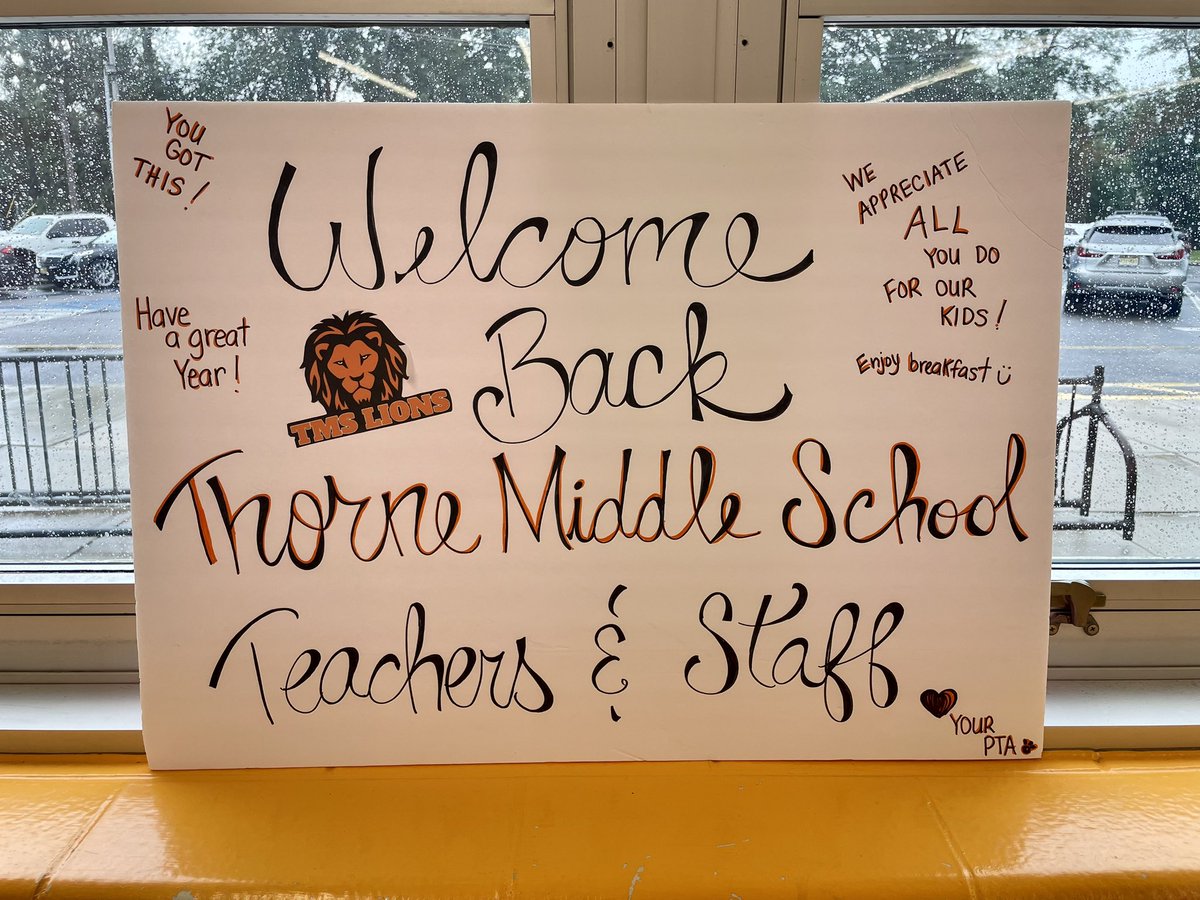 YOU
GOT
THIS!
Have
a great
Year!
Welcome
Back
TMS LIONS
Thorne Middle School
Teachers & Staff
WE
APPRECIATE
ALL
YOU DO
FOR OUR
KIDS!
Enjoy breakfast
YOUR
PTA